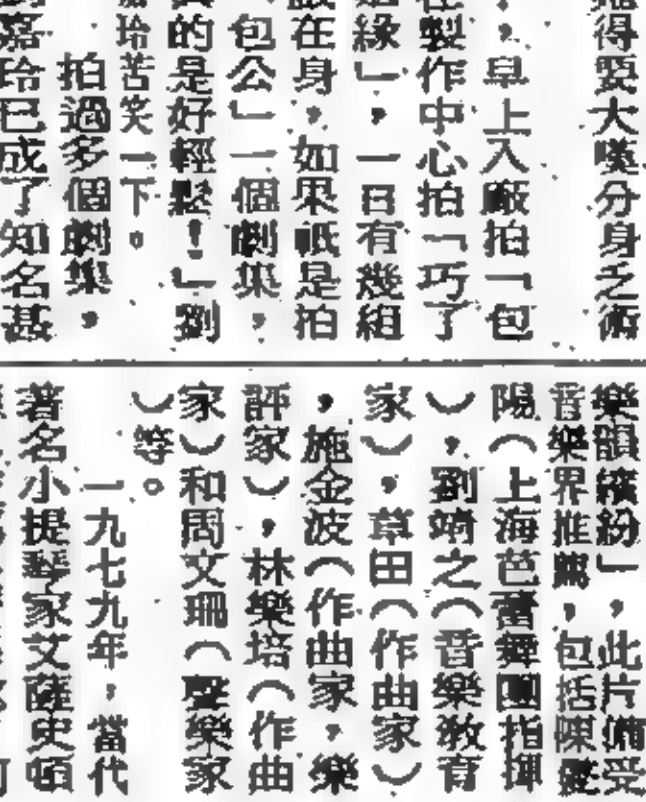 得要大嘆分身乏術
，早上入廠拍「包
在製作中心拍「巧了
姻緣」，一日有幾組
在身，如果祇是拍
包公」一個劇集，
的是好輕鬆！」劉
嘉玲苦笑一下。
拍過多個劇集，
嘉玲已成了知名甚
樂韻繽紛」，此片備受
音樂界推薦，包括陳
陽（上海芭蕾舞團指揮
），劉靖之（音樂教育
家），草田（作曲家）
，施金波（作曲家，樂
評家），林樂培（作曲
家）和周文珊（聲樂家
）等。
一九七九年，當代
著名小提琴家艾薩史頓